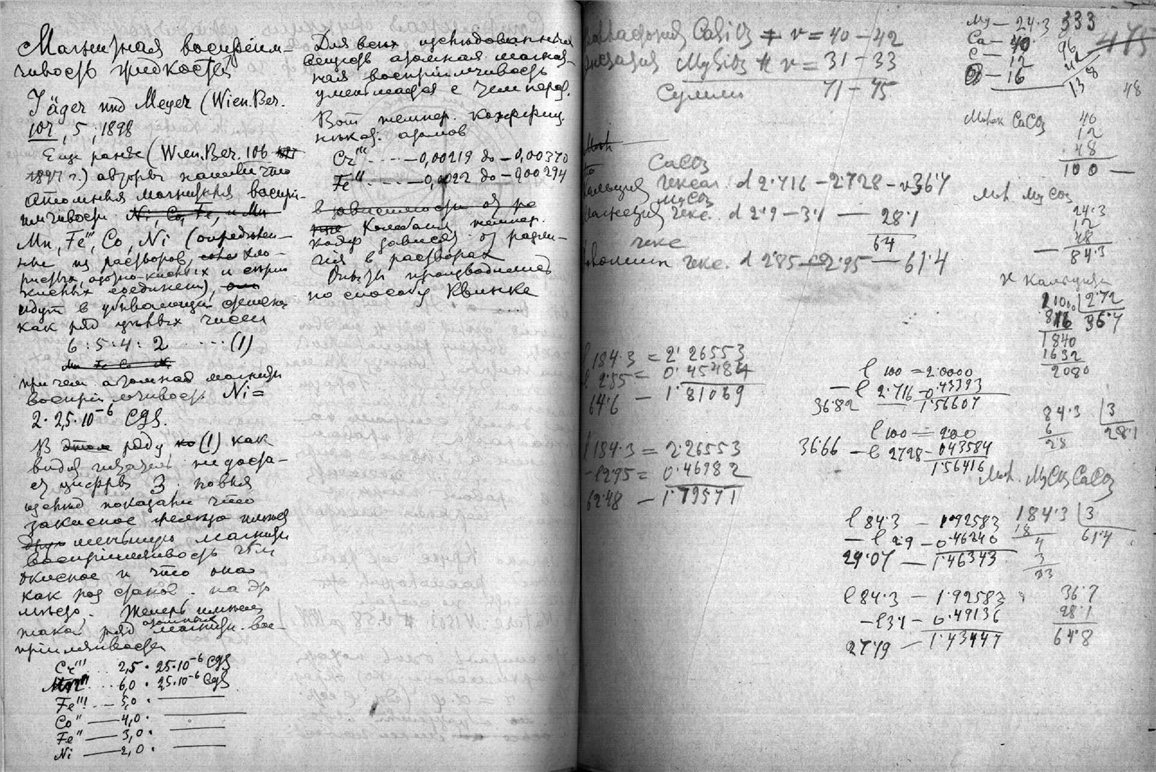 Магнитная восприим-
чивость жидкостей
Jäger und Meyer (Wien. Ber.
107, 5, 1898
Еще ранее (Wien. Ber. 106
1897 г.) авторы нашли что
атомныя магнитныя воспри-
имчивости Ni Co, Fe, и Mn
Mn, Fe''', Co, Ni (определен-
ные из растворов, хло-
ристых, азотно-кислых и серно
кислых соединений),
идут в убывающем
как ряд целых чисел
6 : 5 : 4 : 2 ···· (1)
Mn Fe Co Ni
при чем атомная магнитн
восприимчивость Ni =
2 · 25·10⁻⁶ CgS.
В этом ряду (1) как
видим не доста-
ет цифры 3.
показали что
закисное железо имеет
меньшую магнитн
восприимчивость чем
окисное и что она
как раз
место. Теперь имеем
такой ряд атомных магнитн. вос
приимчивостей
Cr''' ... 2,5 · 25·10⁻⁶ CgS
... 6,0 · 25·10⁻⁶ CgS
Fe''' — 5,0 ·
Co'' — 4,0 ·
Fe'' — 3,0 ·
Ni — 2,0 ·
Для всех изследованных
веществ атомная магнит-
ная восприимчивость
уменьшается с
Вот темпер. коэффиц
атомов
Cr''' ..... —0,00219 до —0,00370
Fe''' —0,0022 до —0,00294
в зависимости от
Колебания темпер.
коэф зависят от разли-
чия в растворах
Опыты производились
по способу Квинке
CaSiO3 + v = 40 – 42
MgSiO3 + v = 31 – 33
Сумма 71 – 75
CaCO3
кальция гексаг. d 2.716 – 2.728 – v 36.7
MgCO3
магнезия гекс. d 2.9 – 3.1 — 28.1
64
гекс
доломит гекс. d 2.85 – 2.95 — 61.4
l 184.3 = 2.26553
l 2.55 = 0.45484
64.6 — 1.81069
l 184.3 = 2.26553
– l 2.95 = 0.46982
62.48 — 1.79571
Mg — 24.3
Ca — 40
C — 12
O — 16
333
96
138
475
48
Мол CaCO3
40
12
48
100 —
Мол. MgCO3
24.3
12
48
84.3
v Кальция
100 | 2.72
816 36.7
1840
1632
2080
l 100 = 2.0000
– l 2.716 – 0.43393
36.82 — 1.56607
l 100 = 2.00
36.66 – l 2.728 – 0.43584
1.56416
84.3 | 3
6 28.1
28
Мол. MgCO3 CaCO3
184.3 | 3
18 61.4
4
3
33
l 84.3 – 1.92583
– l 2.9 – 0.46240
29.07 — 1.46343
l 84.3 – 1.92583
– l 3.1 – 0.49136
27.19 — 1.43447
36.7
28.1
64.8